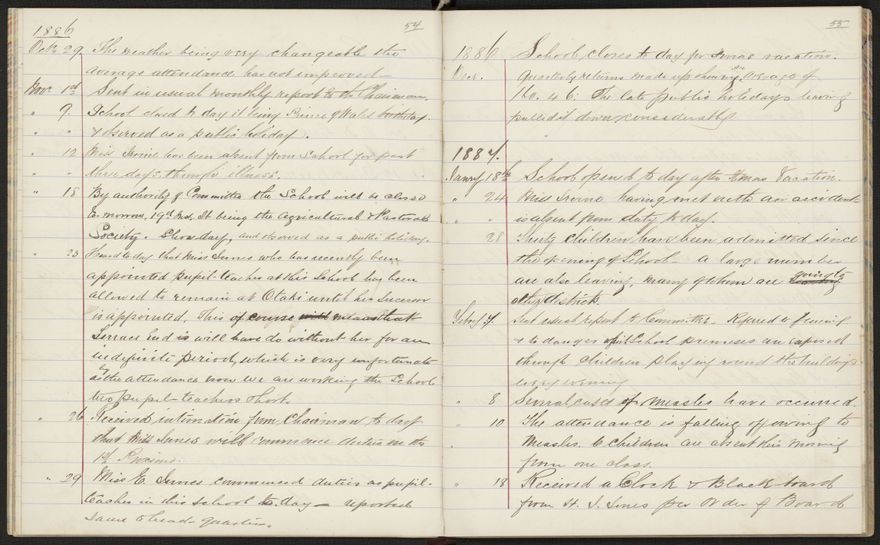 54
1886
Octr 29 The weather being very changeable the
average attendance has not improved.
Novr 1st Sent in usual monthly report to the Chairman.
" 9 School closed to day it being Prince of Wales birthday
" & observed as a public holiday.
" 12 Miss Irvine has been absent from School for past
" three days through illness.
" 18 By authority of Committee the School will be closed
to morrow, 19th Inst, it being the Agricultural & Pastoral
Society's Show day, and observed as a public holiday.
" 23 Heard to day that Miss Innes who has recently been
appointed pupil-teacher at this School has been
allowed to remain at Otaki until her successor
is appointed. This of course means that
Terrace End will have do without her for an
indefinite period, which is very unfortunate
as the attendance now we are working the School
two pupil-teachers short.
" 26 Received intimation from Chairman to day
that Miss Innes will commence duties on the
1st Proximo.
" 29 Miss E. Innes commenced duties as pupil-
teacher in this school to day — reported
same to head quarters.
55
1886 School closes to day for Xmas vacation.
Dec. Quarterly returns made up showing average of
160.46. The late public holidays having
pulled it down considerably
1887.
January 18th School opened to day after Xmas Vacation.
" 24 Miss having met with an accident
" " is absent from duty to day.
28 Thirty children have been admitted since
the opening of School. A large number
are also leaving, many of them are going to
other districts.
Feby 7. Sent usual report to Committee. Referred to fencing
& to danger School premises are exposed
through children playing round the buildings
every evening
" 8 Several cases of Measles have occurred.
" 10 The attendance is falling off owing to
Measles. 6 children are absent this morning
from one class.
" 18 Received a Clock & Black board
from H. J. Jones per Order of Board